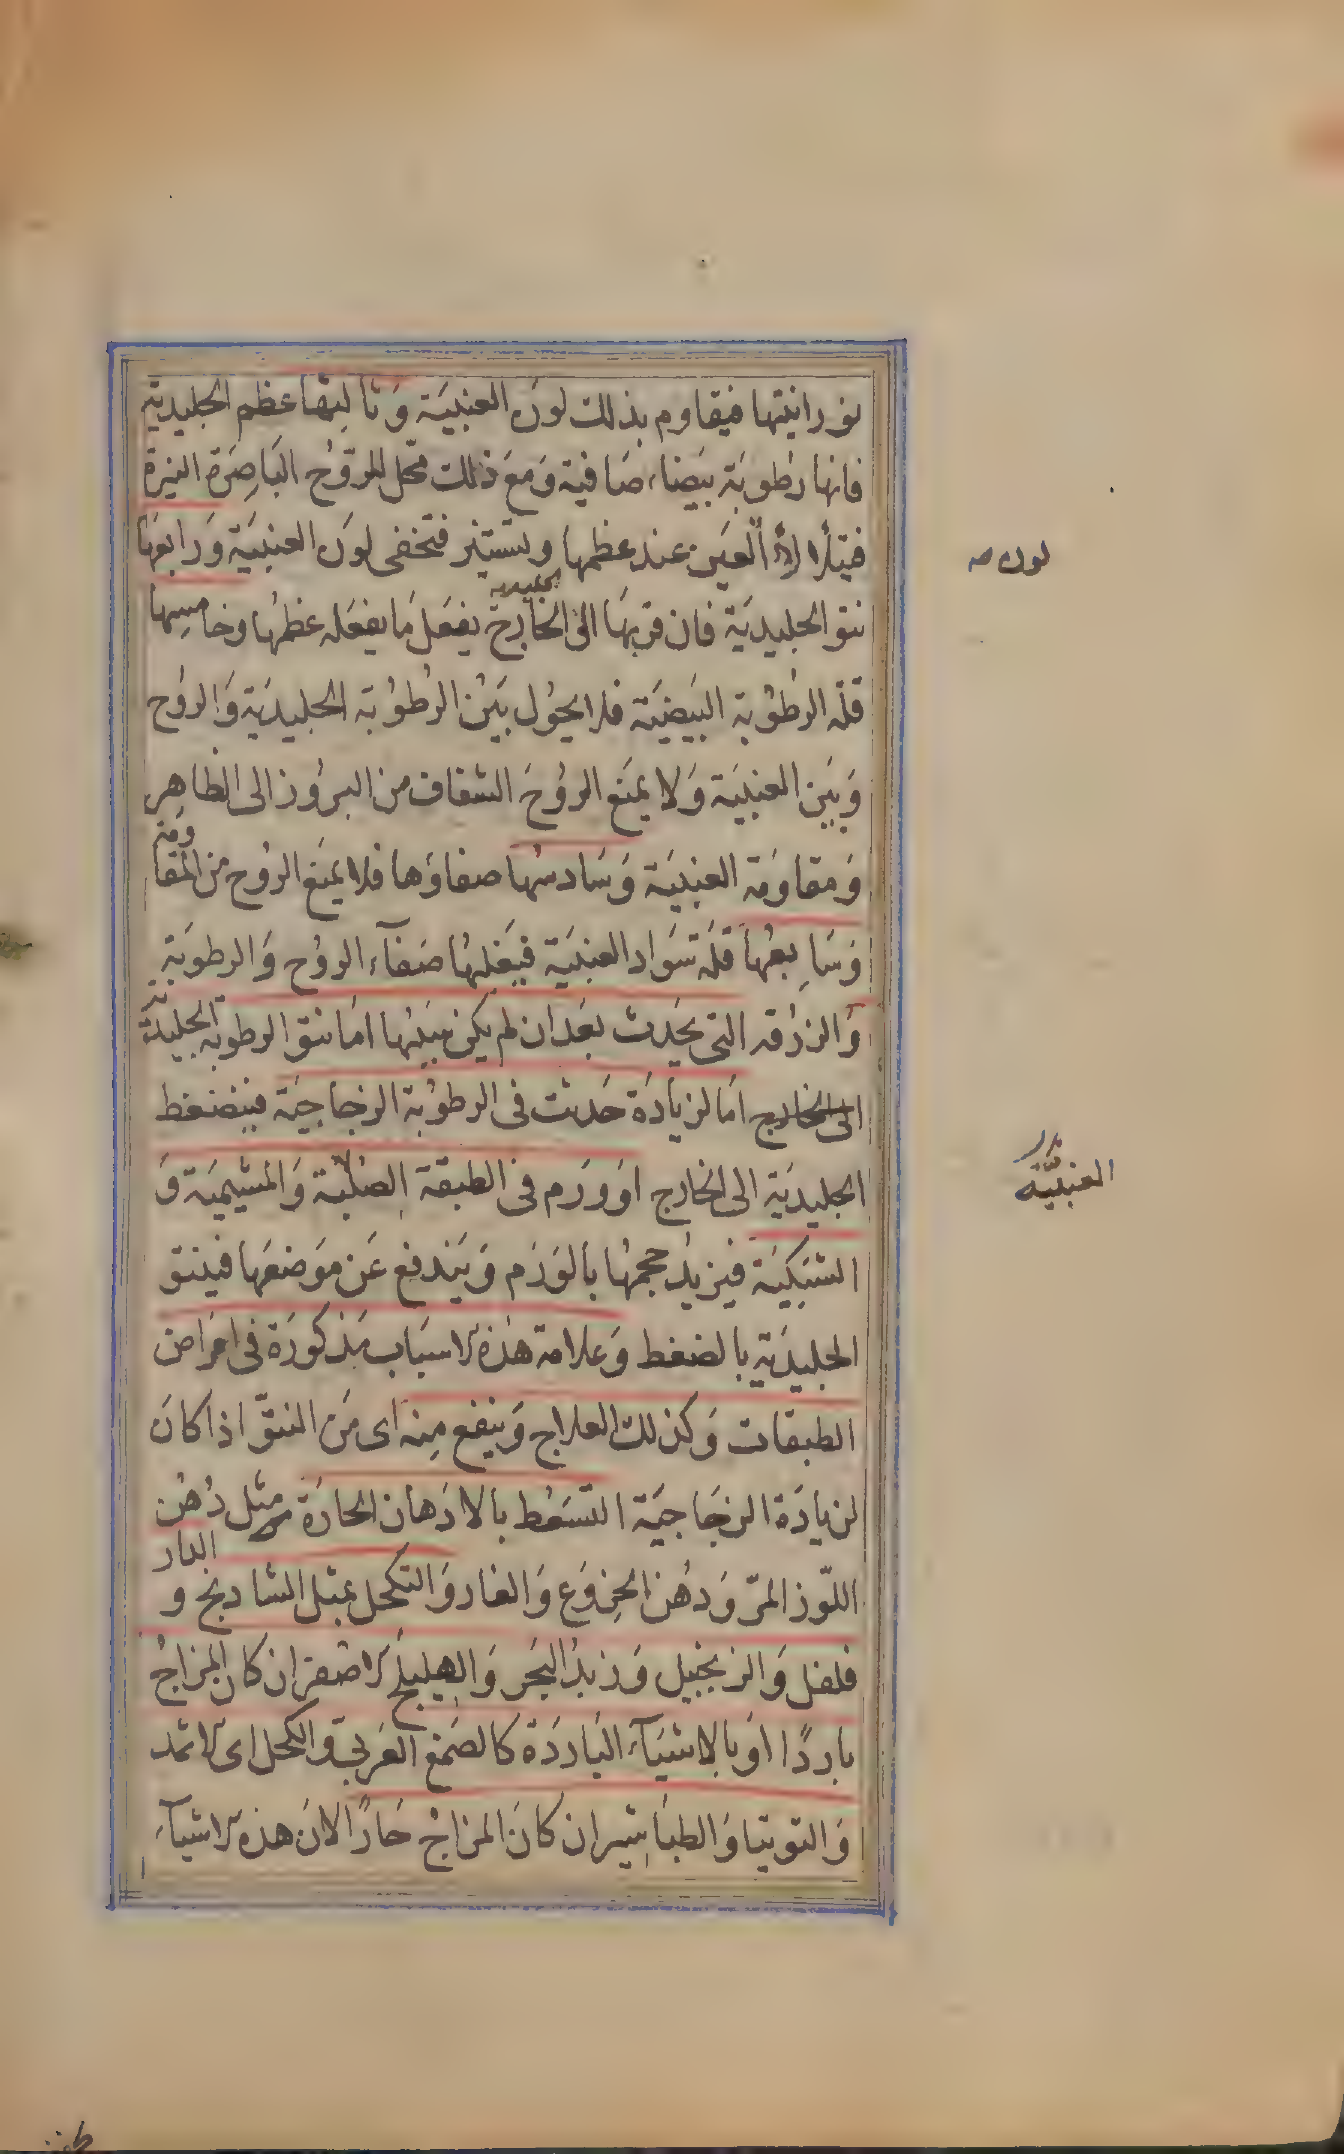 نورانيتها فيقاوم بذلك لون العنبية وَثالثها عظم الجليدية
فانها رطوبَة بيَضاء صَافية وَمعَ ذلك محل للرّوُح البَاصِرَة النيرة
فيتلألأ العَين عند عظمها وتستنير فتخفى لوَن العنبيَة وَرابعهَا
لون صه
نتو الجليديَة فان قربهَا الىَ الخارج يفعَل مَا يفعَله عظمُها وخامسِها
الجليدية
قلّة الرطوُبة البَيضيَة فلا يحوُل بيَن الرطوُبة الجليديَة وَالروُح
وَبيَن العنبيَة وَلا يمنَع الروُحَ الشفاف من البروُز الى الظاهِر
وَمقاومَة العنبيَة وَسَادسُها صفاؤها فلا يمنَع الروُح من المقا
ومة
وَسَابعُها قلَة سَواد العنبيَة فيَغلبُها صَفآء الروُح وَالرطوبَة
وَالزرُقة التى يحَدث بعَدان لم يكن سَبَبُها امَا نتو الرطوبة الجليديَة
الى الخارج امَا لزيادَة حَدثت فى الرطوبُة الزجاجيَة فينضغط
الجليديَة الى الخارج اوَ ورَم فى الطبقة الصُلبَّة وَالمشيميَة وَ
العنبيَّة
الشبَكيَة فيزيدُ حجمهُا بالوَرَم وَيَندفع عَن مَوضعَها فينتو
الجليديَة بالضغط وَعلامة هذه الاسبَاب مَذكورَة فى امرَاض
الطبقات وَكذلك العلاج وَينفع مِنه اى مَن النتوّ اذا كانَ
لزيادَة الزجَاجيَة التسَعُط بالادَهان الحارَة مثِل دُهن
اللوّز المرّ وَدهُن الخِروَع وَالغار وَالتكحل بمثِل الشادنج و
الدار
فلفل وَالزنجبيل وَزبدُ البحَر وَالهليلجَ الاصَفر ان كان المزاجُ
باردًا اوَ بالاشيَآء البَاردَة كالصَمغ العَربىَ وَالكحل اى الاثمد
وَالتوتيا وَالطبَاشير ان كانَ المزاجُ حَارًا لانَ هذه الاشيآء